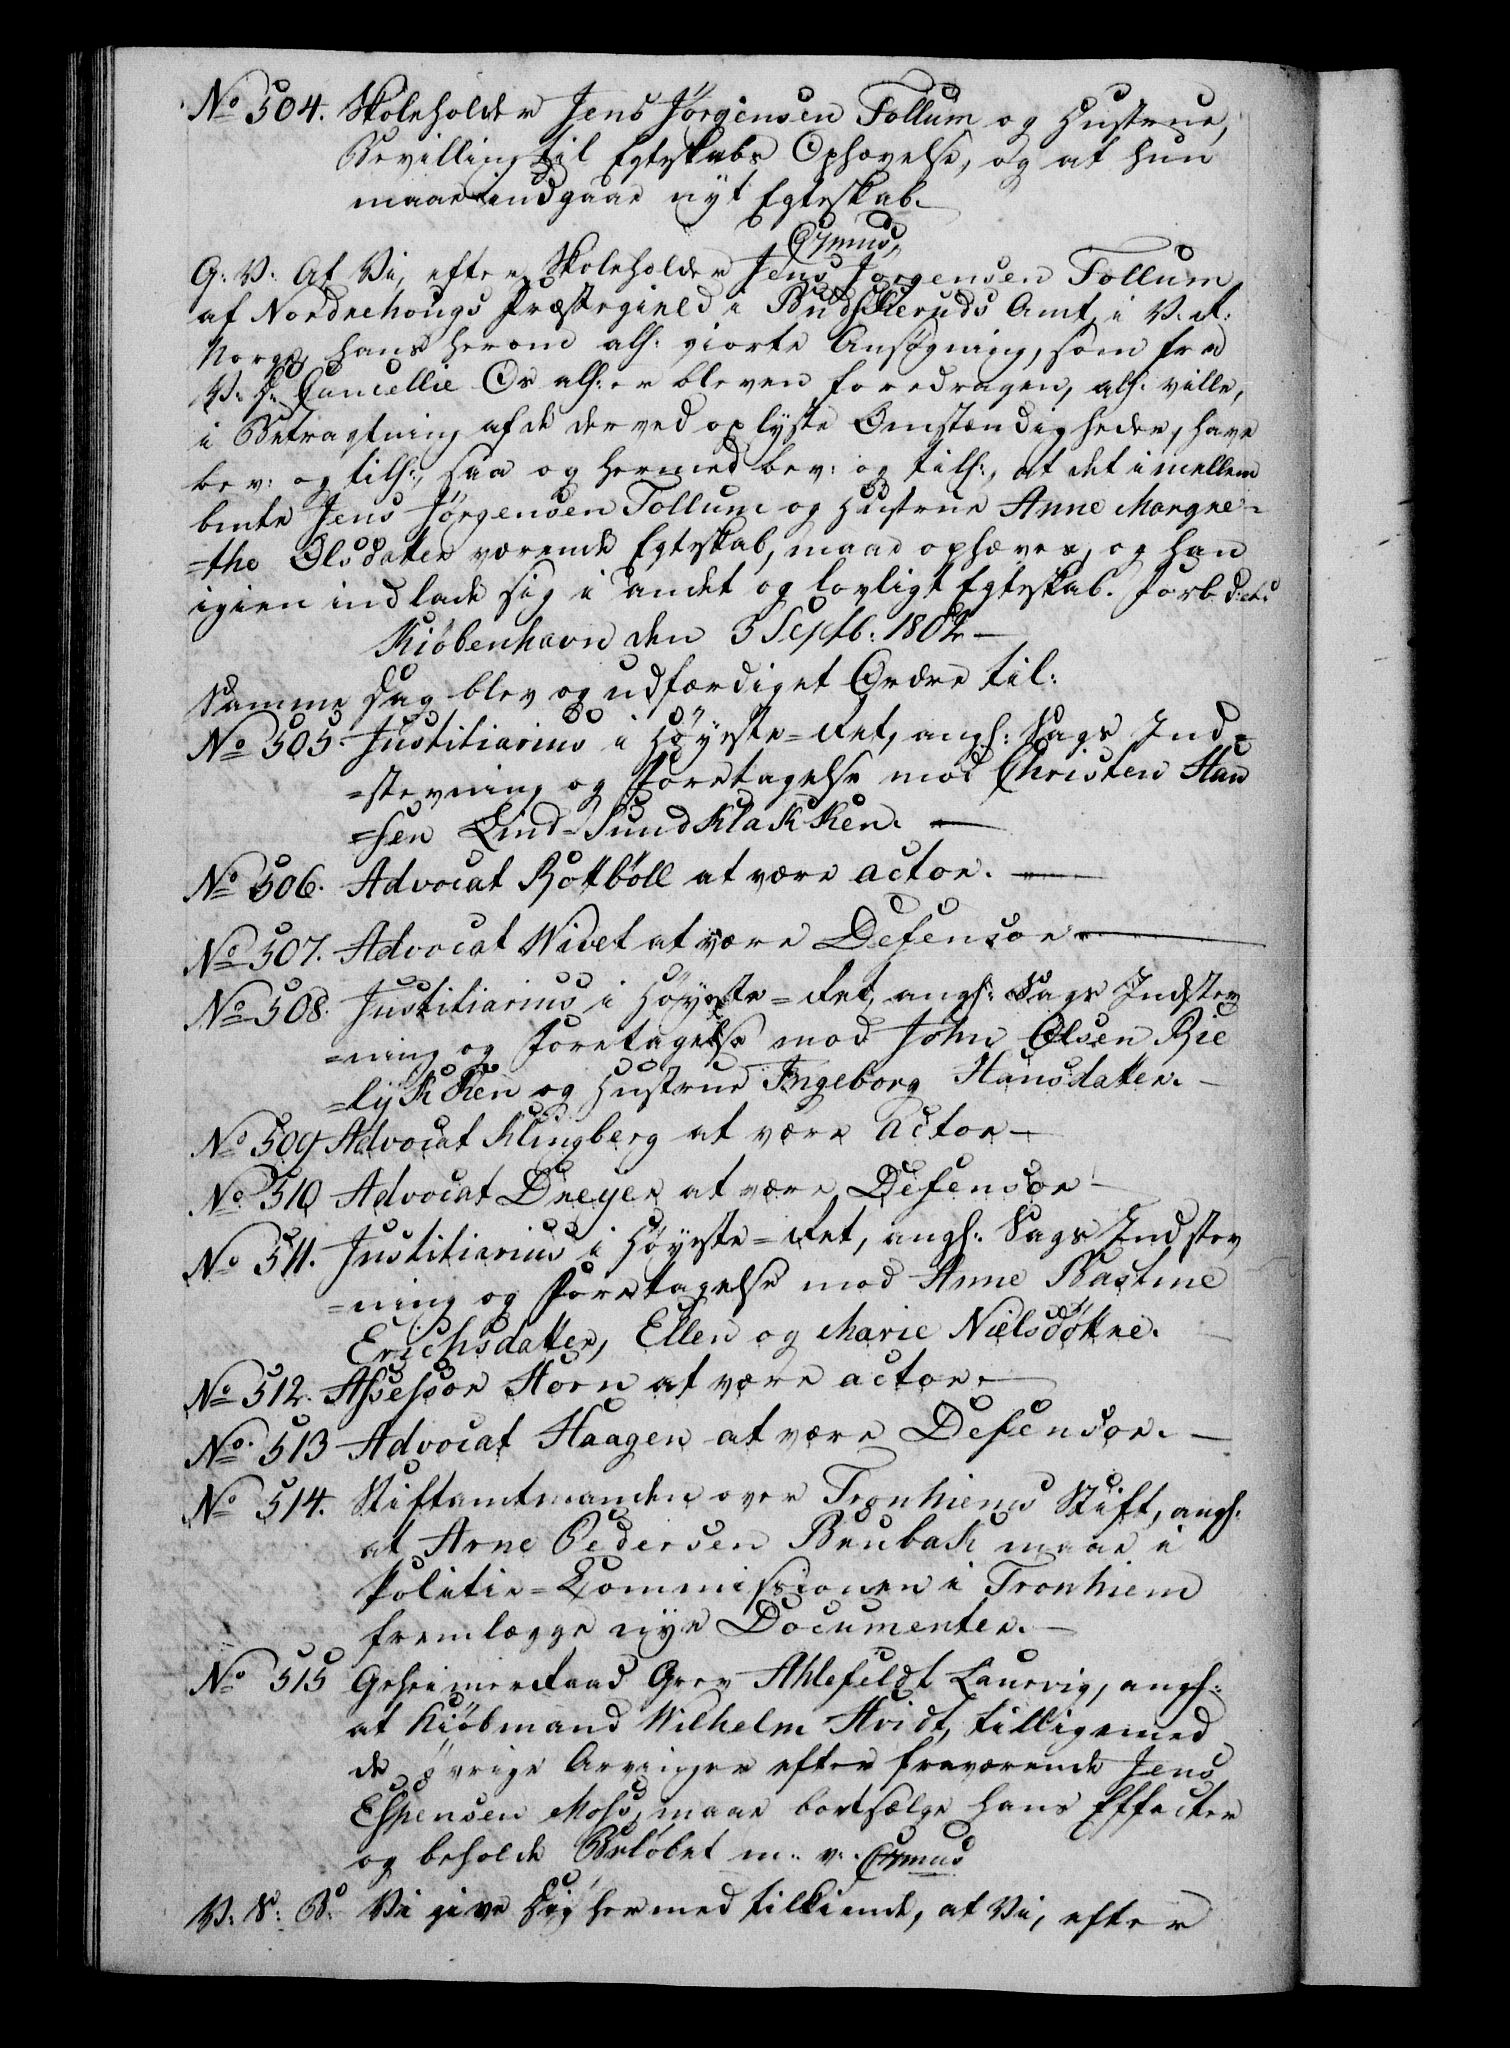 No 504. Skoleholder Jens Jörgensen Follum og Hustrue,
Bevilling til Egteskabs Ophævelse, og at hun
maae indgaae nyt Egteskab.
G: V: At Vi, efter Skoleholder Jens Jörgensen Follum
af Nordrehougs Præstegield i Budskeruds Amt, i V: R:
Norge, hans herom alh: giorte Ansøgning, som fra
V: D: Cancellie Os alh: er bleven foredragen, alh: ville,
i Betragtning af de derved oplyste Omstændigheder, have
bev: og tilh:, saa og hermed bev: og tilh:, at det imellem
bemte Jens Jörgensen Follum og Hustrue Anne Margre=
=the Olsdatter værende Egteskab, maae ophæves, og han
igien indlade sig i andet og lovligt Egteskab. Forb: d: et:
Kiöbenhavn den 3 Septb: 1802
Samme Dag blev og udfærdiget Ordre til:
No 505. Justitiarius i Höyeste=Ret, angl: Sags Ind=
=stevning og Foretagelse mod Christen Han
=sen Lind-Sundklakken.
No 506. Advocat Rottböll at være Actor.
No 507. Advocat Wivet at være Defensor
No 508. Justitiarius i Höyeste=Ret, angl: Sags Indstev
=ning og Foretagelse mod John Olsen Bie
=lykken og Hustrue Ingeborg Hansdatter.
No 509 Advocat Klingberg at være Actor
No 510 Advocat Dreyer at være Defensor
No 511. Justitiarius i Höyeste=Ret, angl: Sags Indstev
=ning og Foretagelse mod Anne Bastine
Erichsdatter, Ellen og Marie Nielsdöttre.
No 512. Assessor Horn at være Actor.
No 513 Advocat Haagen at være Defensor.
No 514. Stiftamtmanden over Tronhiems Stift, angl:
at Arne Pedersen Brubak maae i
Politie=Commissionen i Tronhiem
fremlægge nye Documenter.
No 515 Geheimeraad Grev Ahlefeldt Laurvig, angl:
at Kiöbmand Wilhelm Hvidt, tilligemed
de övrige Arvinger efter fraværende Jens
Espensen Moss, maae bortsælge hans Effecter
og beholde Belöbet m: v:
V: S: B: Vi give Dig hermed tilkiende, at Vi, efter